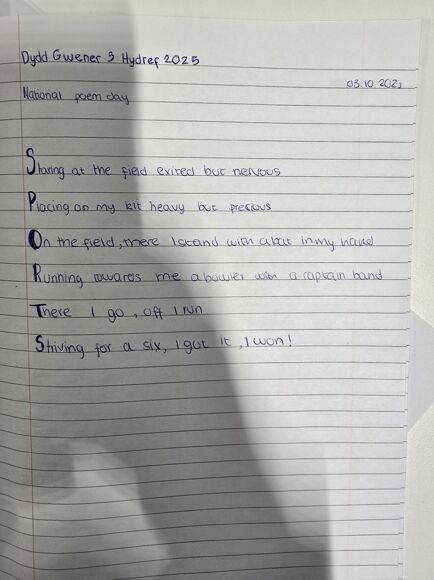 Dydd Gwener 3 Hydref 2025
03.10.2025
National poem day
Staring at the field exited but nervous
Placing on my kit heavy but precious
On the field, there I stand with a bat in my hand
Running towards me a bowler with a captain band
There I go, off I run
Striving for a six, I got it, I won!